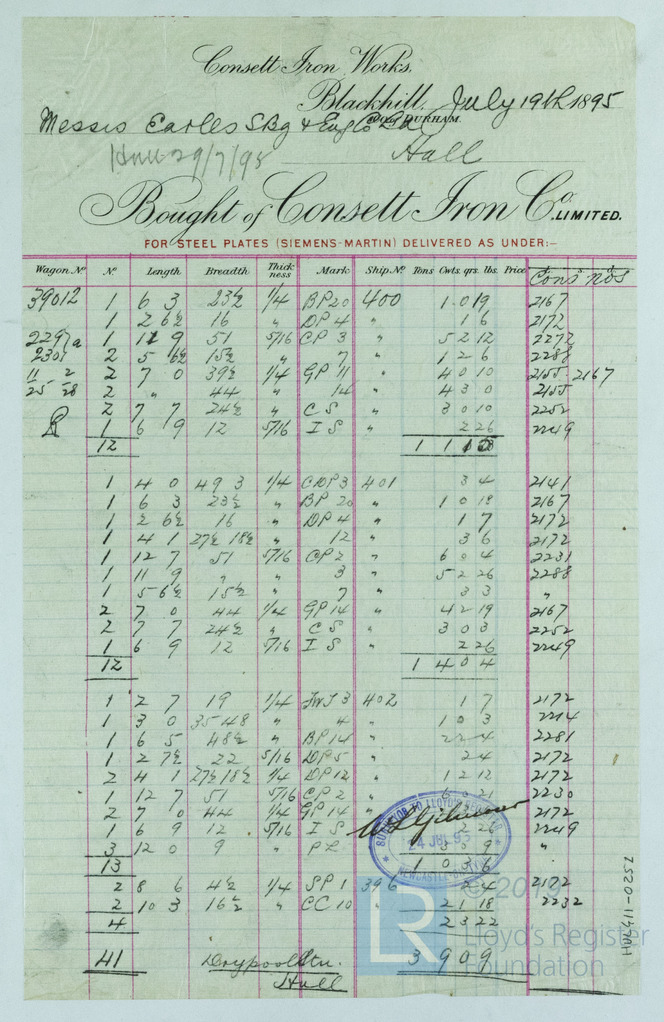 Consett Iron Works,
Blackhill, July 19th 1895
Co. DURHAM.
Messrs Earles SBg & Eng Co Ld
Hull 29/7/95
Hull
Bought of Consett Iron Co. LIMITED.
FOR STEEL PLATES (SIEMENS-MARTIN) DELIVERED AS UNDER:-
Wagon. No No Length Breadth Thickness Mark Ship. No Tons Cwts. qrs. lbs. Price Cons nos
39012 1 6 3 23½ 1/4 BP 20 400 1 0 19 2167
1 2 6½ 16 " DP 4 " 1 6 2172
2297a 1 11 9 51 5/16 CP 3 " 5 2 12 2272
2301 2 5 6½ 15½ " 7 " 1 2 6 2288
11 2 2 7 0 39½ 1/4 GP 11 " 4 0 10 2155. 2167
25 28 2 " 44 " 14 " 4 3 0 2155
2 7 7 24½ " C S " 3 0 10 2252
1 6 9 12 5/16 I S " 2 26 2249
12 1 1
1 4 0 49 3 1/4 CDP 3 401 3 4 2141
1 6 3 23½ " BP 20 " 1 0 18 2167
1 2 6½ 16 " DP 4 " 1 7 2172
1 4 1 27½ 18½ " 12 " 3 6 2172
1 12 7 51 5/16 CP 2 " 6 0 4 2231
1 11 9 " " 3 " 5 2 26 2288
1 5 6½ 15½ " 7 " 3 3 "
2 7 0 44 1/4 GP 14 " 4 2 19 2167
2 7 7 24½ " C S " 3 0 3 2252
1 6 9 12 5/16 I S " 2 26 2249
12 1 4 0 4
1 2 7 19 1/4 3 402 1 7 2172
1 3 0 35 48 " 4 " 1 0 3
1 6 5 48½ " BP 14 " 2 2 4 2281
1 2 7½ 22 5/16 DP 5 " 2 4 2172
2 4 1 27½ 18½ 1/4 DP 12 " 1 2 12 2172
1 12 7 51 5/16 CP 2 " 6 0 21 2230
2 7 0 44 1/4 GP 14 " 2172
1 6 9 12 5/16 I S 2 26 2249
3 12 0 9 " 9 "
13 1 0 3 6
SURVEYOR TO LLOYD'S REGISTER
24 JUL 95
NEWCASTLE-ON-TYNE
2 8 6 4½ 1/4 SP 1 396 2 4 2172
2 10 3 16½ " CC 10 " 2 1 18 2232
4 2 3 22
41 Drypool Stn. 3 9 0 9
Hull
© 2019
LR
Lloyd's Register
Foundation